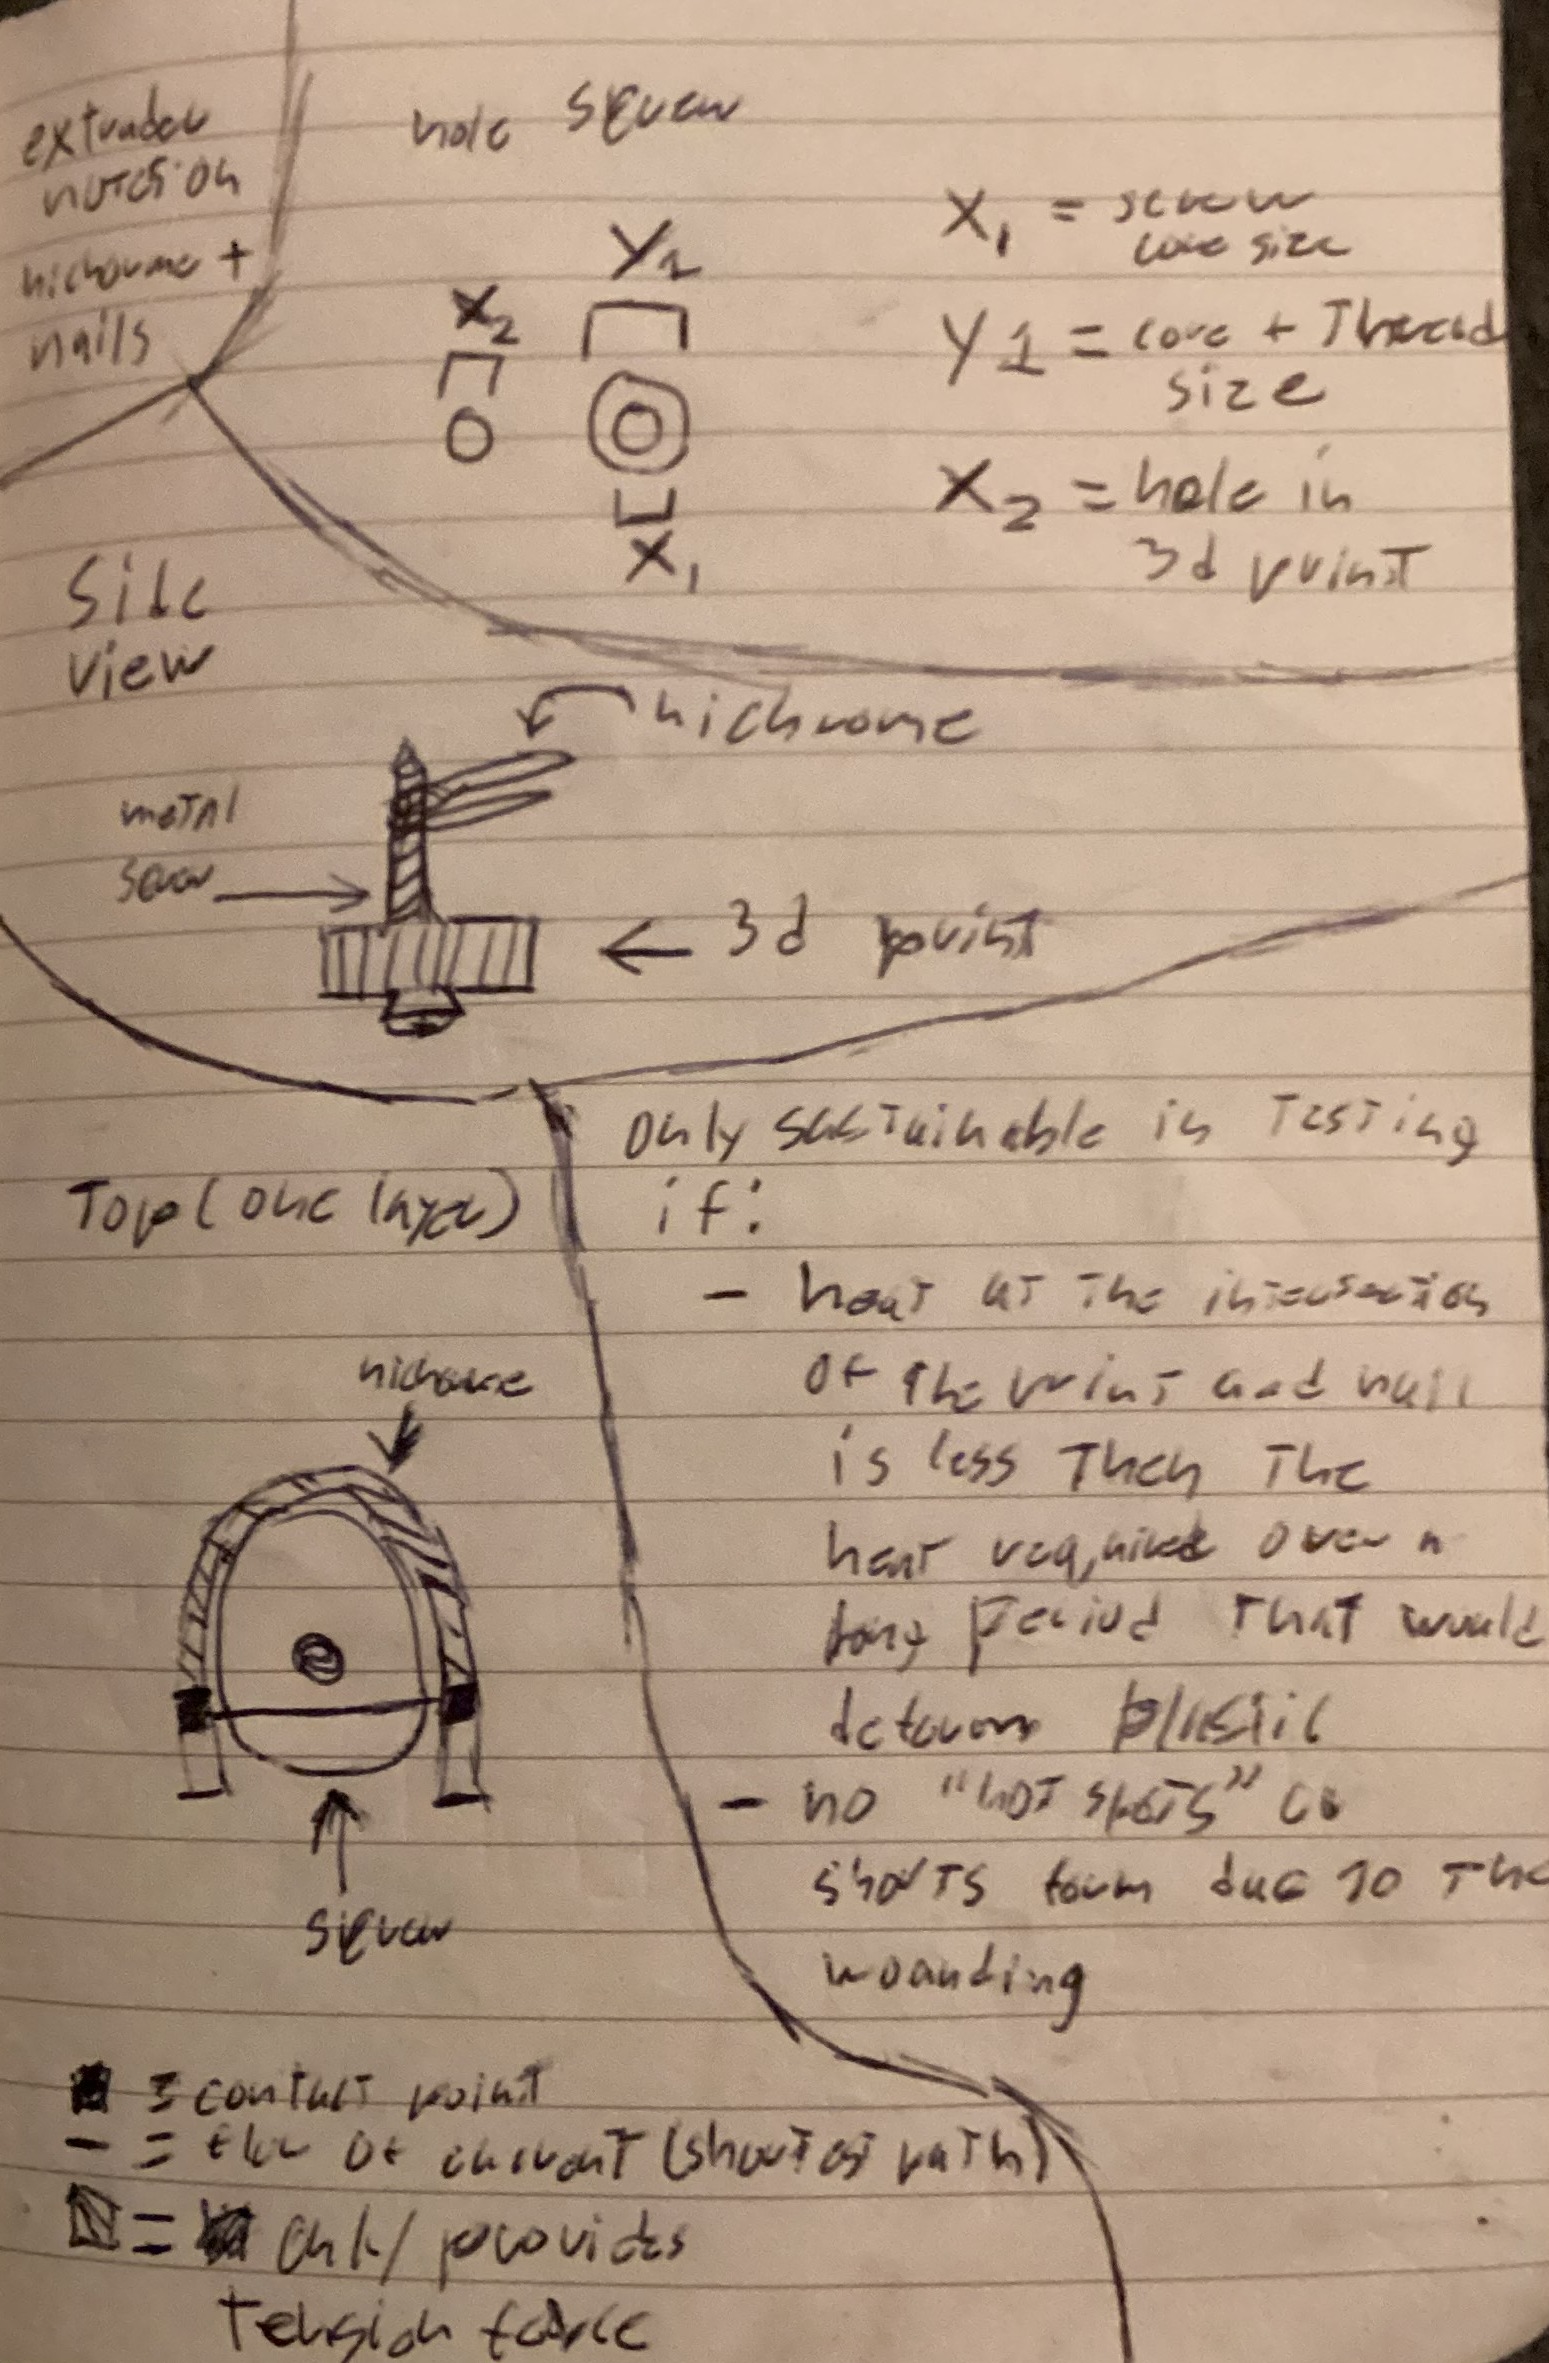 extruder
nichrome +
nails
hole screw
Y1
X2
X1
X1 = screw
core size
Y1 = core + Thread
size
X2 = hole in
3d print
Side
view
nichrome
metal
screw
3d print
Top (one layer)
nichrome
screw
only sustainable in testing
if:
- heat at the intersection
of the print and nail
is less then the
heat required over a
long period that would
deform plastic
- no "hot spots" or
shorts form due to the
wounding
= contact point
- = flow of current (shortest path)
= only provides
tension force